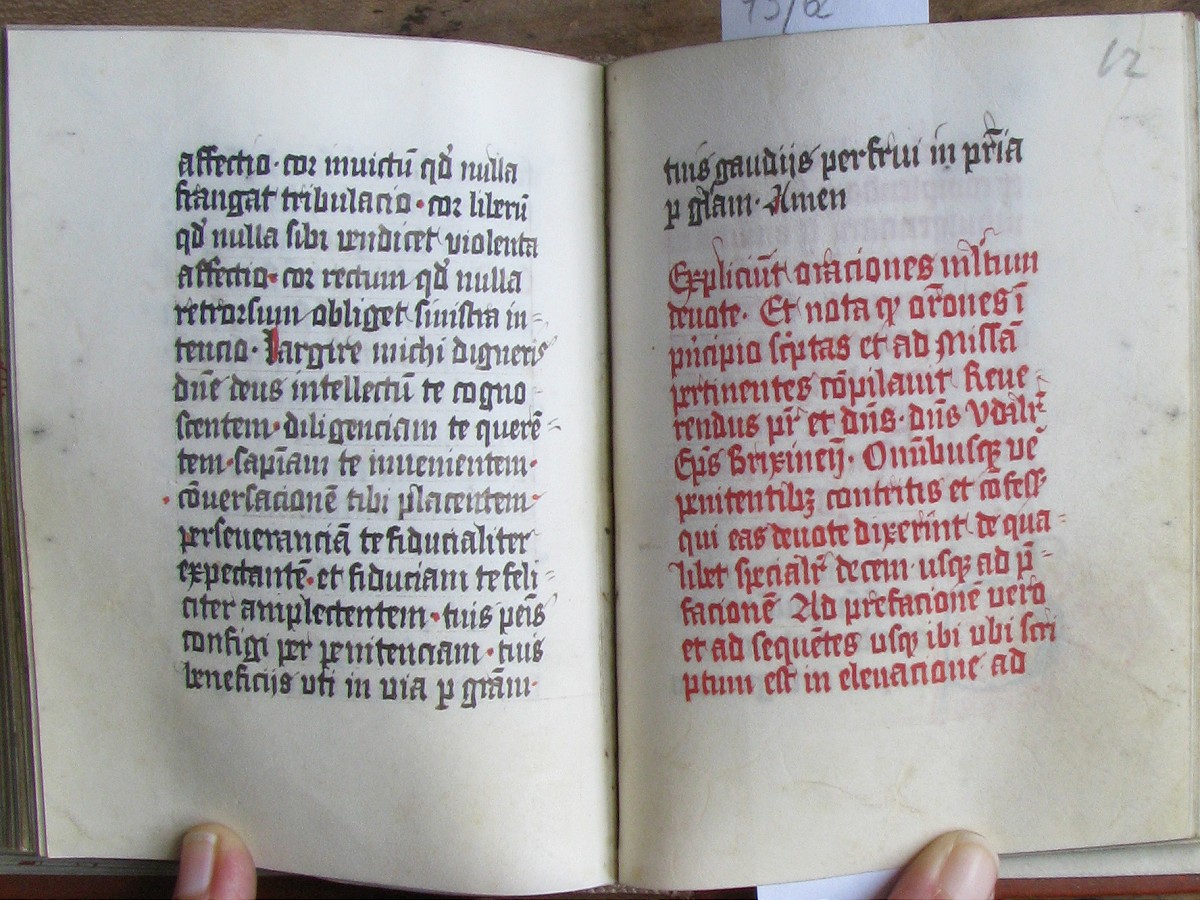 affectio · cor inuictū qđ nulla
frangat tribulacio · cor liberū
qđ nulla sibi vendicet violenta
affectio · cor rectum qđ nulla
retrorsum obliget sinistra in-
tencio · Largire michi digneris
dn̄e deus intellectū te cogno-
scentem · diligenciam te querē-
tem · sapīam te inuenientem ·
cōuersacionē tibi placentem ·
perseueranciā te fiducialiter
expectantē · et fiduciam te feli-
citer amplectentem · tuis pēis
configi per penitenciam · tuis
beneficijs vti in via p gr̄am ·
73/62
12
tuis gaudijs perfrui in pr̄ia
p gl̄am · Amen
Expliciūt oraciones ml̄tum
deuote · Et nota qꝫ or̄ones ī
pn̍cipio scr̍ptas et ad Missā
pertinentes cōpilauit Reue-
rendus pr̄ et dn̄s · dn̄s Vdalr̄
Ep̄s Brixineñ · Om̄ibusqꝫ ve̅
penitentibꝫ contritis et cōfess̄
qui eas deuote dixerīnt de qua-
libet specialr̄ decem · usqꝫ ad p̄-
facionē Ad prefacionē vero
et ad sequētes usqꝫ ibi vbi scri
ptum est in eleuacione ad